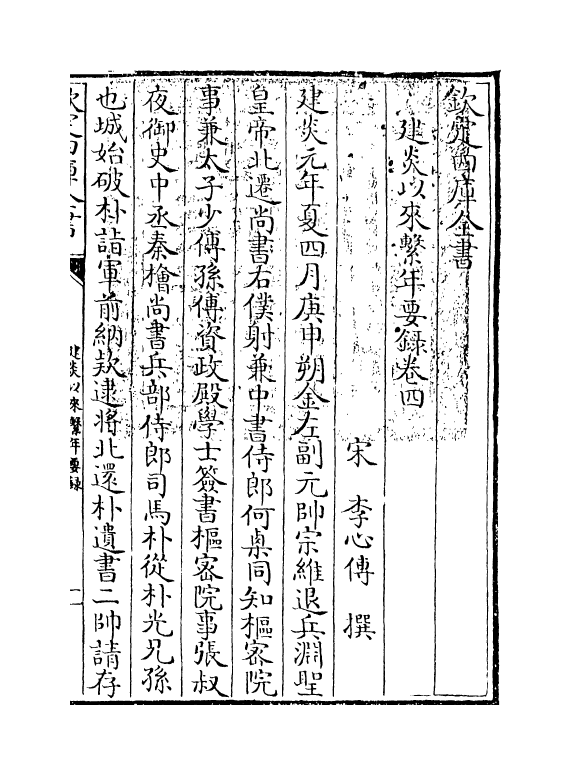 欽定四庫全書
建炎以來繫年要録卷四
宋 李心傳 撰
建炎元年夏四月庚申朔金左副元帥宗維退兵淵聖
皇帝北遷尚書右僕射兼中書侍郎何㮚同知樞密院
事兼太子少傅孫傅資政殿學士簽書樞密院事張叔
夜御史中丞秦檜尚書兵部侍郎司馬朴從朴光兄孫
也城始破朴詣軍前納欵逮將北還朴遺書二帥請存
欽定四庫全書
建炎以來繫年要録
一